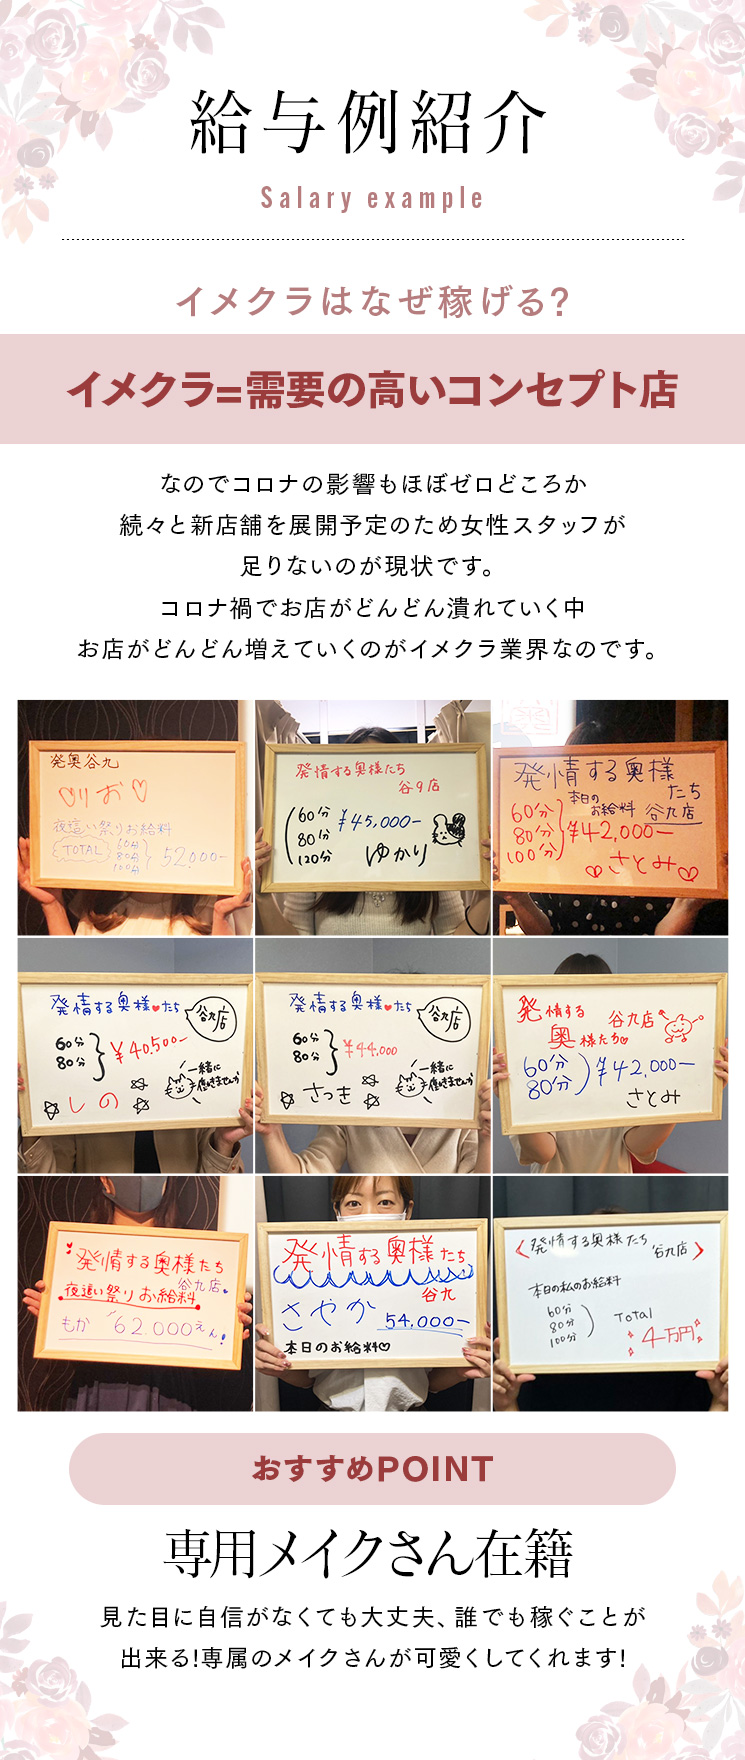 給与例紹介
Salary example
イメクラはなぜ稼げる?
イメクラ=需要の高いコンセプト店
なのでコロナの影響もほぼゼロどころか
続々と新店舗を展開予定のため女性スタッフが
足りないのが現状です。
コロナ禍でお店がどんどん潰れていく中
お店がどんどん増えていくのがイメクラ業界なのです。
発奥谷九
りお
夜這い祭りお給料
TOTAL
60分
80分
100分
52,000-
発情する奥様たち
谷9店
60分
80分
120分
¥45,000-
ゆかり
発情する奥様
たち
本日の
お給料
谷九店
60分
80分
100分
¥42,000-
さとみ
発情する奥様♥たち
谷九店
60分
80分
¥40,500-
一緒に
働きませんか
しの
発情する奥様♥たち
谷九店
60分
80分
¥44,000
一緒に
働きませんか
さつき
発情する
奥様たち
谷九店
60分
80分
¥42,000-
さとみ
発情する奥様たち
谷九店
夜這い祭りお給料
もか
62,000えん!
発情する奥様たち
谷九
さやか
54,000-
本日のお給料♡
発情する奥様たち
谷九店
本日の私のお給料
60分
80分
100分
Total
4万円
おすすめPOINT
専用メイクさん在籍
見た目に自信がなくても大丈夫、誰でも稼ぐことが
出来る!専属のメイクさんが可愛くしてくれます!